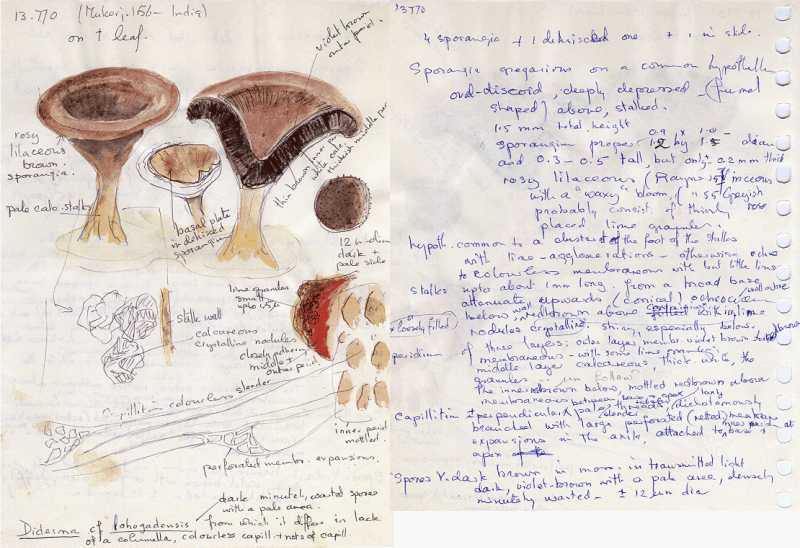 13.770 (Mukerj. 156- India)
on † leaf.
violet brown
outer perid.
rosy
lilaceous
brown.
sporangia.
pale calc. stalks
thin brown inner per.
white calc.
thickish middle per
basal plate
in dehisced
sporangium
12 µm diam
dark
pale side
lime granules
small
upto 1.5 µ
stalk wall
calcareous
crystalline nodules
closely adhering
middle +
outer perid.
Capillitium colourless slender
inner perid
mottled.
perforated membr. expansions.
dark minutel, warted spores
with a pale area.
Didesma cf lohogadensis from which it differs in lack
of a columella, colourless capill + nets of capill
13770
4 sporangia + 1 dehisced one + 1 in slide.
Sporangia gregarious on a common hypothallus
ovd-discoid, deeply depressed - (funnel
shaped) above, stalked.
1.5 mm total height
sporangium proper by diam
and 0.3 - 0.5 tall, but only 0.2 mm thick
rosy lilaceous (Rayner
with a "waxy" bloom, (n 55 Greyish
rose
probably consist of thinly
placed lime granules.
hypoth. common to a cluster of the foot of the stalks
with lime-agglomerations - otherwise ochre
to colourless membraneous with but little lime
stalks upto about 1 mm long. from a broad base
attenuate upwards (conical) ochraceous
below, redbrown above with lime
nodules crystalline shiny, especially below.
loosely filled
peridium of three layers: outer layer membr. violet brown
membraneous - with some lime
middle layer calcareous, thick with the
granules.
the inner brown below, mottled redbrown above
membraneous
Capillitium ± perpendicular, pale threads, dichotomously
slender
branched with large perforated (netted) membran
expansions in the axils, attached to base &
apex
Spores v. dark brown in mass. in transmitted light
dark, violet-brown with a pale area, densely
minutely warted - ± 12 µm dia